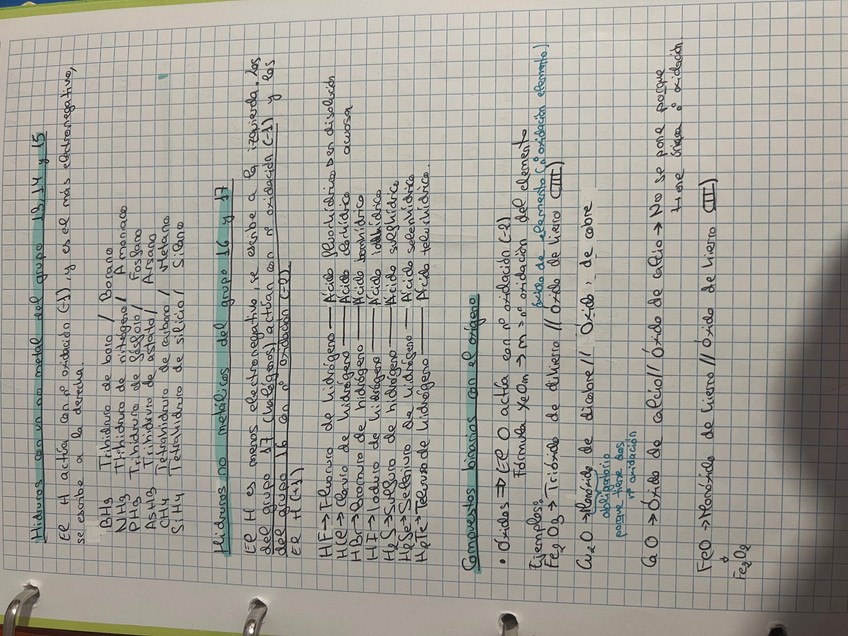 Hidruros con un no metal del grupo 13, 14 y 15
El H actúa con nº oxidación (-1) y es el más electronegativo,
se escribe a la derecha.
BH3 Trihidruro de boro / Borano
NH3 Trihidruro de nitrógeno / Amoniaco
PH3 Trihidruro de fósforo / Fosfano
AsH3 Trihidruro de / Arsano
CH4 Tetrahidruro de carbono / Metano
SiH4 Tetrahidruro de silicio / Silano
Hidruros no metálicos del grupo 16 y 17
El H es menos electronegativo, se escribe a la izquierda. Los
del grupo 17 (halógenos) actúan con nº oxidación (-1) y los
del grupo 16 con nº oxidación (-2)
El H (+1)
HF → Fluoruro de hidrógeno — Ácido fluorhídrico → en disolución
acuosa
HCl → Cloruro de hidrógeno — Ácido clorhídrico
HBr → Bromuro de hidrógeno — Ácido bromhídrico
HI → Ioduro de hidrógeno — Ácido iodhídrico
H2S → Sulfuro de hidrógeno — Ácido sulfhídrico
H2Se → Seleniuro de hidrógeno — Ácido selenhídrico
H2Te → Telururo de hidrógeno — Ácido telurhídrico.
Compuestos binarios con el oxígeno
• Óxidos ⇒ El O actúa con nº oxidación (-2)
Fórmula X2Om → m = nº oxidación del elemento
óxido de elemento (nº oxidación elemento)
Ejemplos:
Fe2O3 → Trióxido de dihierro // Óxido de hierro (III)
Cu2O → Monóxido de dicobre // Óxido de cobre
obligatorio
porque tiene dos
nº oxidación
CaO → Óxido de calcio // Óxido de calcio → No se pone porque
tiene única nº oxidación
FeO → Monóxido de hierro // Óxido de hierro (II)
Fe2O2